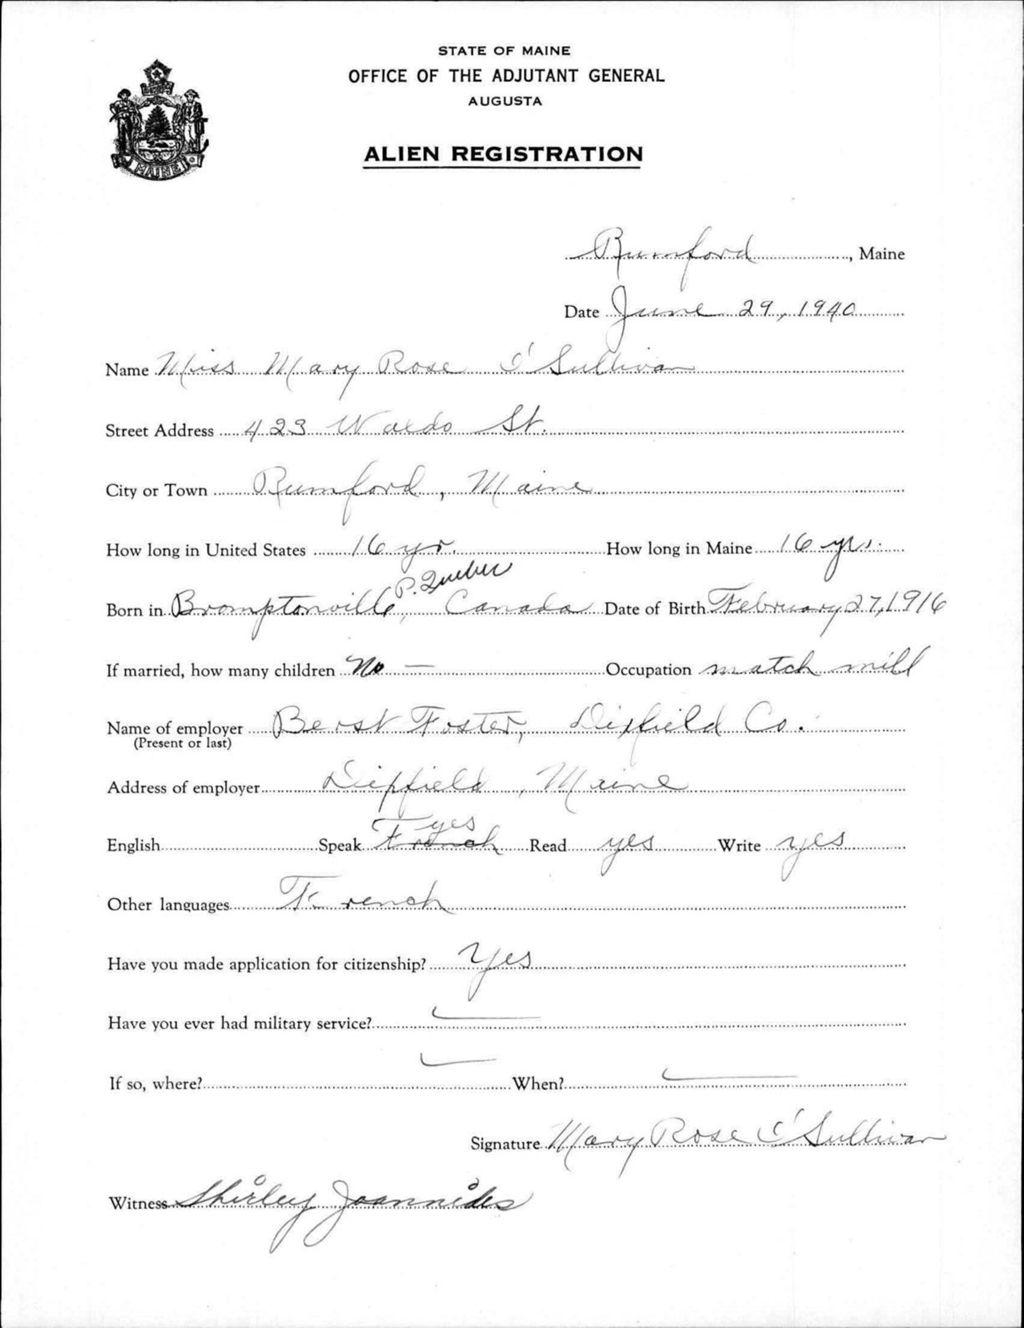 STATE OF MAINE
OFFICE OF THE ADJUTANT GENERAL
AUGUSTA
ALIEN REGISTRATION
MAINE
Rumford, Maine
Date June 29, 1940
Name Miss Mary Rose O'Sullivan
Street Address 423 Waldo St.
City or Town Rumford, Maine
How long in United States 16 yr. How long in Maine 16 yrs.
Born in Bromptonville, P. Quebec Canada Date of Birth February 27, 1916
If married, how many children No — Occupation match mill
Name of employer Berst Foster, Dixfield Co.
(Present or last)
Address of employer Dixfield, Maine
English Speak French yes Read yes Write yes
Other languages French
Have you made application for citizenship? Yes
Have you ever had military service? —
If so, where? — When? —
Signature Mary Rose O'Sullivan
Witness Shirley Joannides